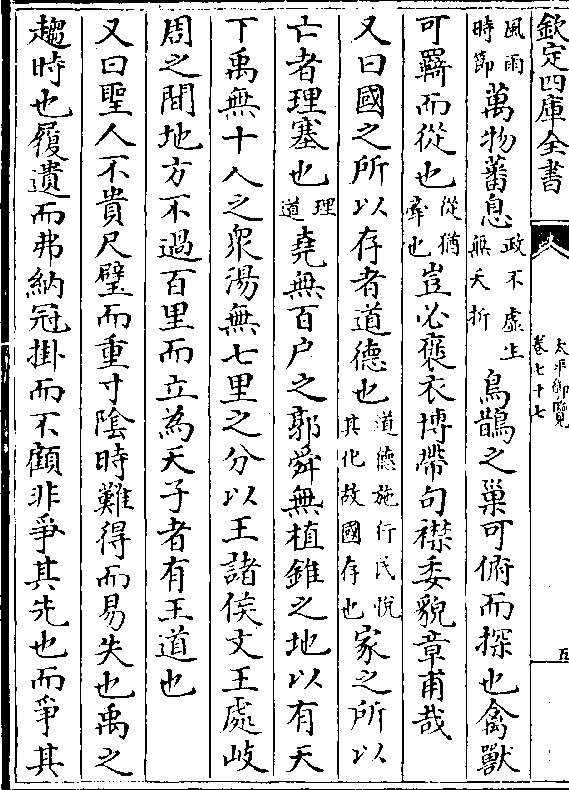 欽定四庫全書
太平御覽
卷七十七
五
風雨時節萬物蕃息政不虛生無夭折烏鵲之巢可俯而探也禽獸
可羈而從也從猶牽也豈必褒衣博帶句襟委貌章甫哉
又曰國之所以存者道德也道德施行民悅其化故國存也家之所以
亡者理塞也理道堯無百户之郭舜無植錐之地以有天
下禹無十人之衆湯無七里之分以王諸侯文王處岐
周之間地方不過百里而立為天子者有王道也
又曰聖人不貴尺璧而重寸陰時難得而易失也禹之
趨時也履遺而弗納冠掛而不顧非爭其先也而爭其